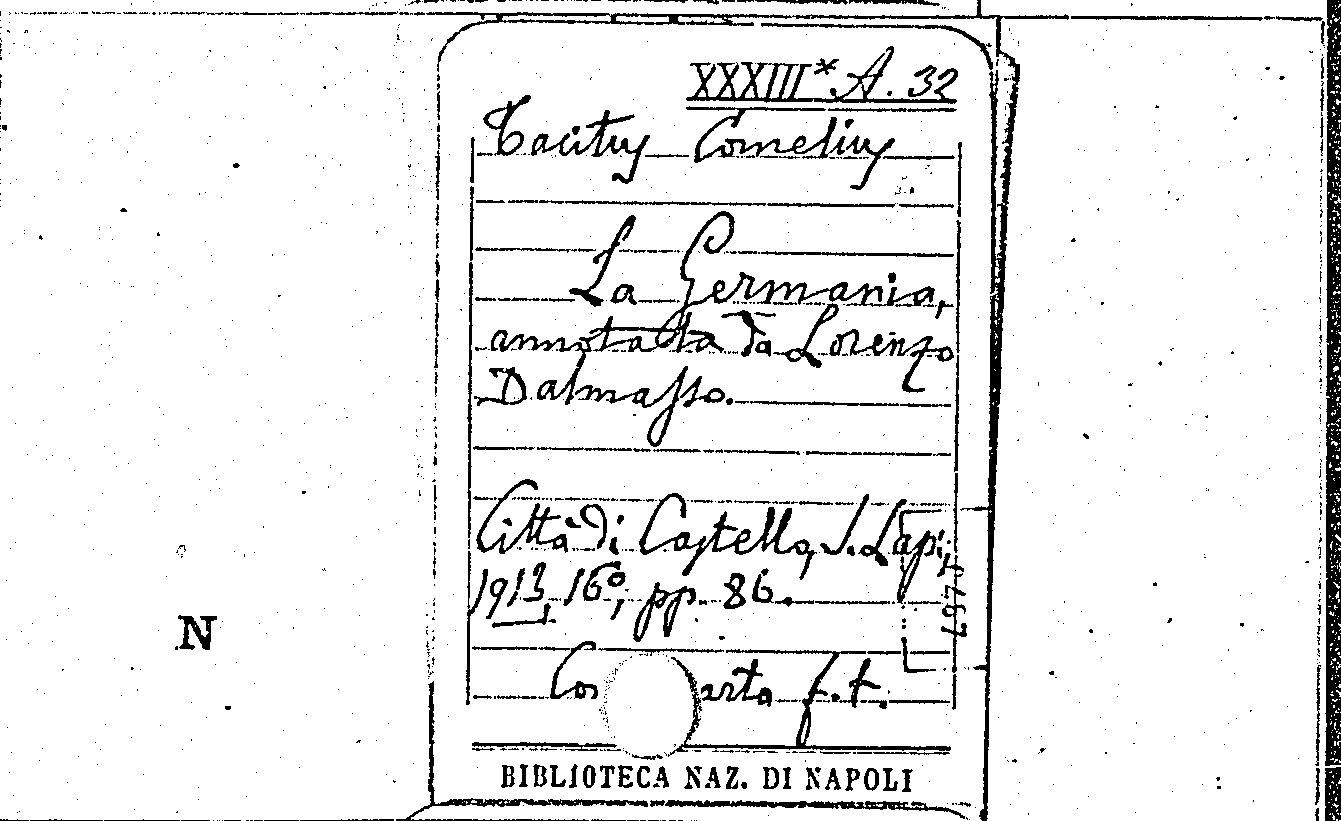 XXXIII* A. 32
Tacitus Cornelius
La Germania,
annotata da Lorenzo
Dalmasso.
Città di Castello, S. Lapi,
1913, 16º, pp. 86.
Con carta f. t.
N
BIBLIOTECA NAZ. DI NAPOLI